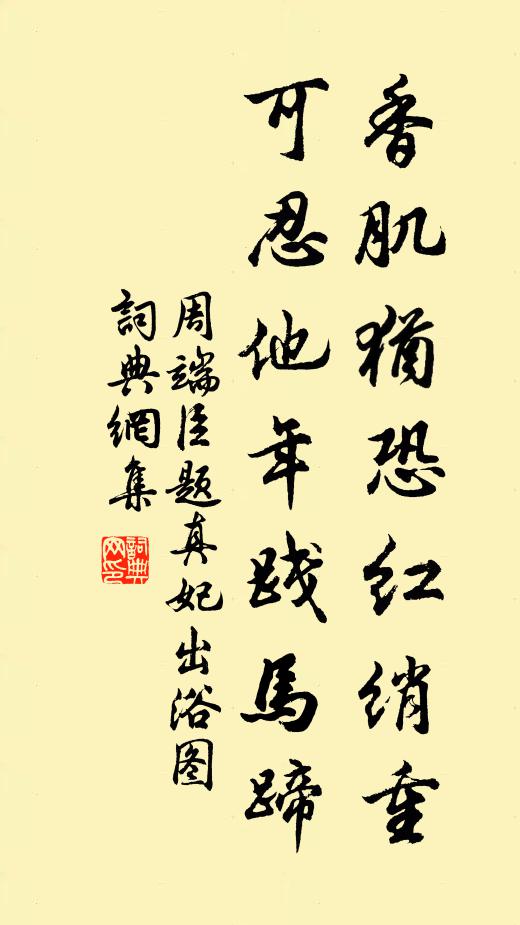 香肌猶恐紅綃重
可忍他年踐馬蹄
周端臣題真妃出浴图
詞典網集
詞典
网印